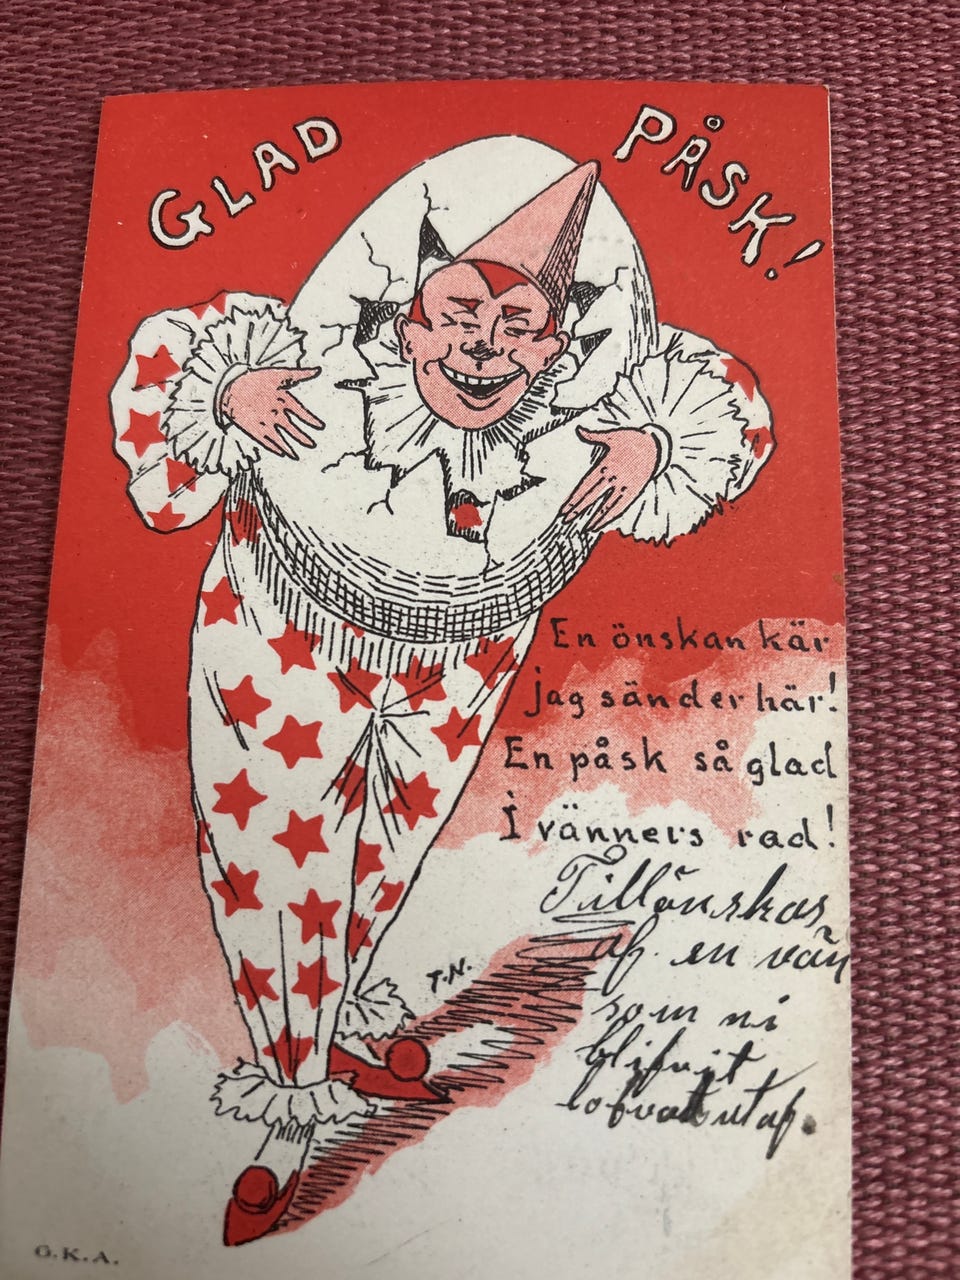 GLAD PÅSK!
En önskan kär
jag sänder här!
En påsk så glad
I vänners rad!
Tillönskas
af en vän
som ni
blifvit
lofvad utaf.
T.N.
G.K.A.